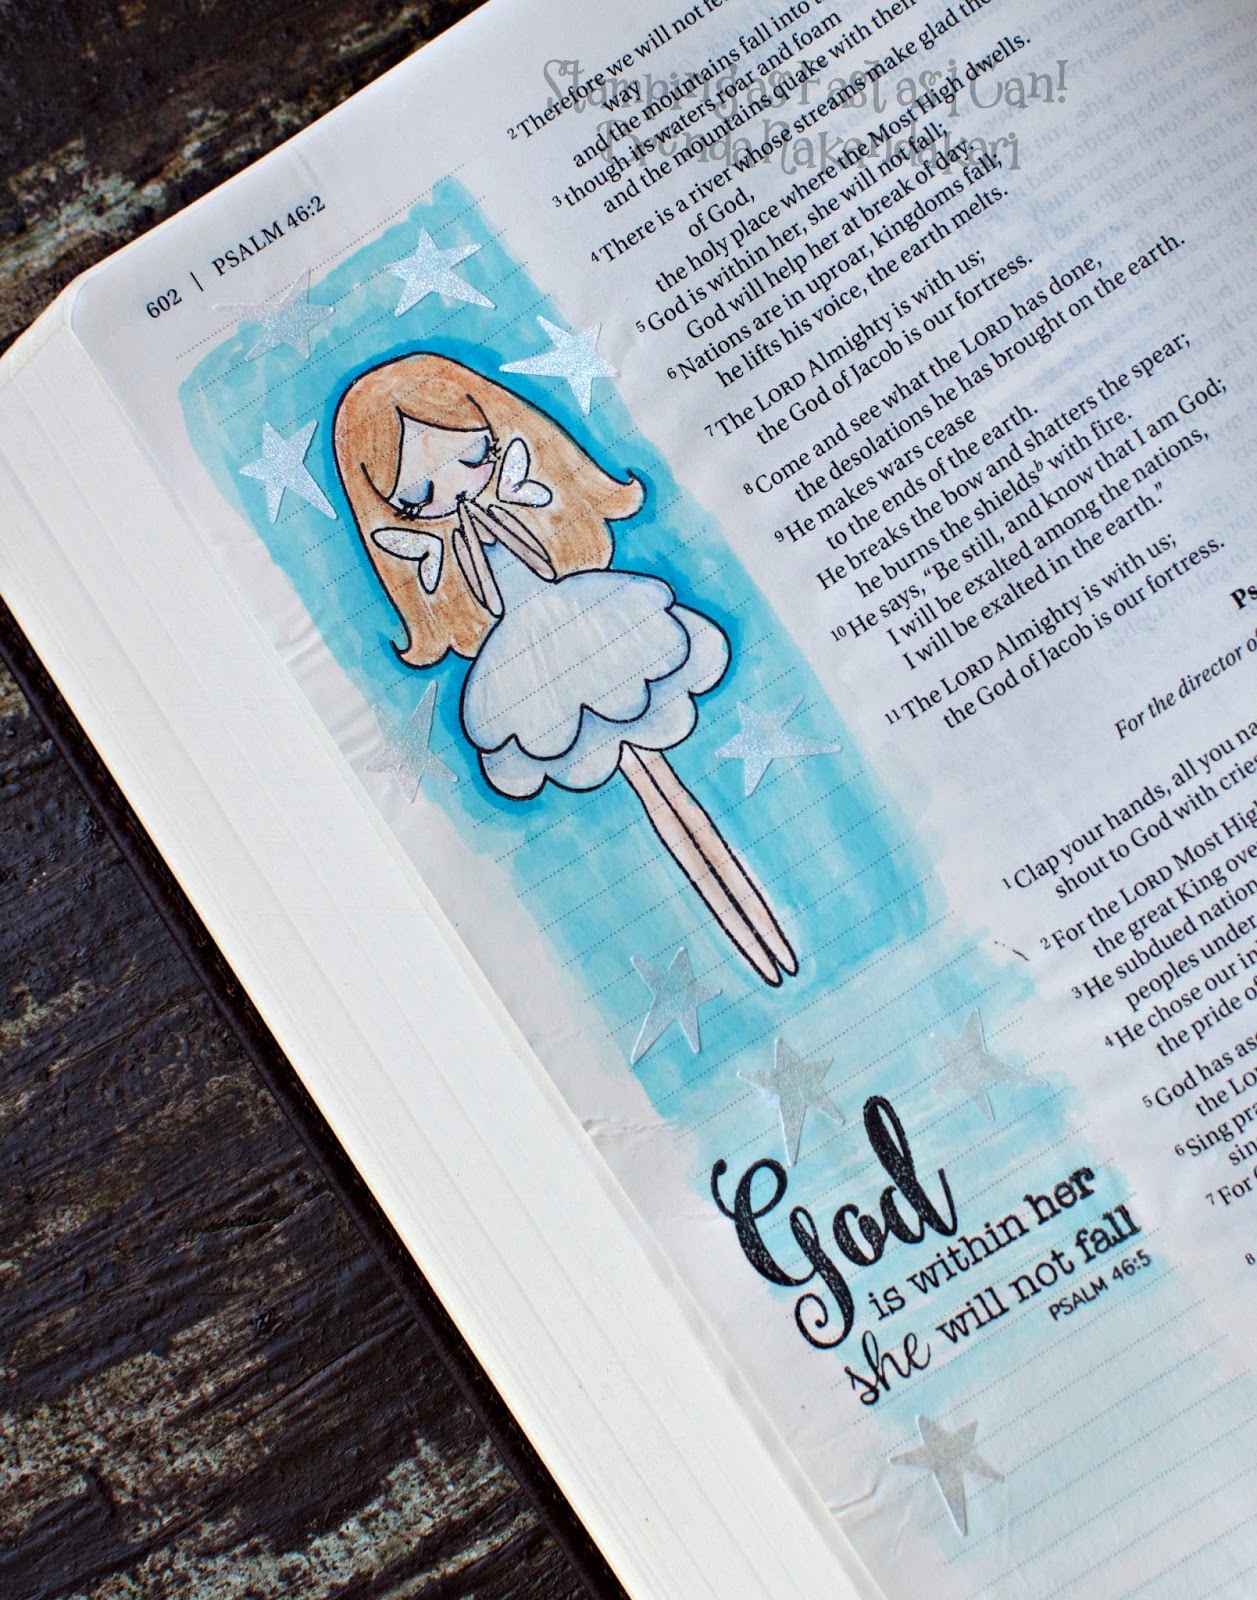 Stamping as Fast as I Can!
Brenda Nakandakari
602 | PSALM 46:2
2 Therefore we will not
way
and the mountains fall into
3 though its waters roar and foam
and the mountains quake with their
4 There is a river whose streams make glad the
of God,
the holy place where the Most High dwells.
5 God is within her, she will not fall;
God will help her at break of day.
6 Nations are in uproar, kingdoms fall;
he lifts his voice, the earth melts.
7 The LORD Almighty is with us;
the God of Jacob is our fortress.
8 Come and see what the LORD has done,
the desolations he has brought on the earth.
9 He makes wars cease
to the ends of the earth.
He breaks the bow and shatters the spear;
he burns the shields b with fire.
10 He says, “Be still, and know that I am God;
I will be exalted among the nations,
I will be exalted in the earth.”
11 The LORD Almighty is with us;
the God of Jacob is our fortress.
Ps
For the director
1 Clap your hands, all you
shout to God with cries
2 For the LORD Most High
the great King over
3 He subdued
peoples under
4 He chose our
the pride of
5 God has
the
6 Sing
7 For
8
God
is within her
she will not fall
PSALM 46:5